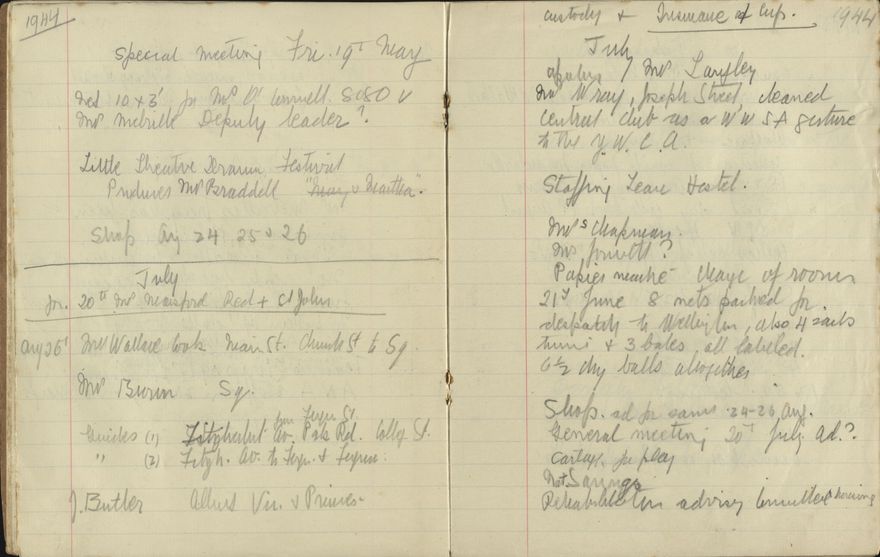 1944
Special meeting Fri. 19th May
Net 10 x 3' for Mrs O'Connell
Mrs Deputy leader?
Little Theatre Drama Festival
Produces Mrs Braddell "Mary & Martha".
Shop Aug 24 25 & 26
July
20th Mrs Red + St John
Aug 26th Mrs Wallace took Main St. Church St to Sq.
Mrs Sq.
Guides (1) Fitzherbert Av. Park Rd. College St.
" (2) Fitzh. Av. to Fergn. &
J. Butler Albert Vic. & Princes
custody & Insurance of Cup. 1944
July
Mrs Langley
Mr Wray, Joseph Street, cleaned
Central club as a W W S A gesture
to the Y.W.C.A.
Staffing Leave Hostel.
Mrs Chapman
Mrs
Papier mache - charge of room
21st June 8 nets packed for
despatch to Wellington, also 4 sacks
& 3 bales, all labeled.
6½ dry balls altogether
Shop. ad for same 24-26 Aug.
General meeting 20th July ad.?
Cartage for play
Savings
Rehabilitation advisory Committee